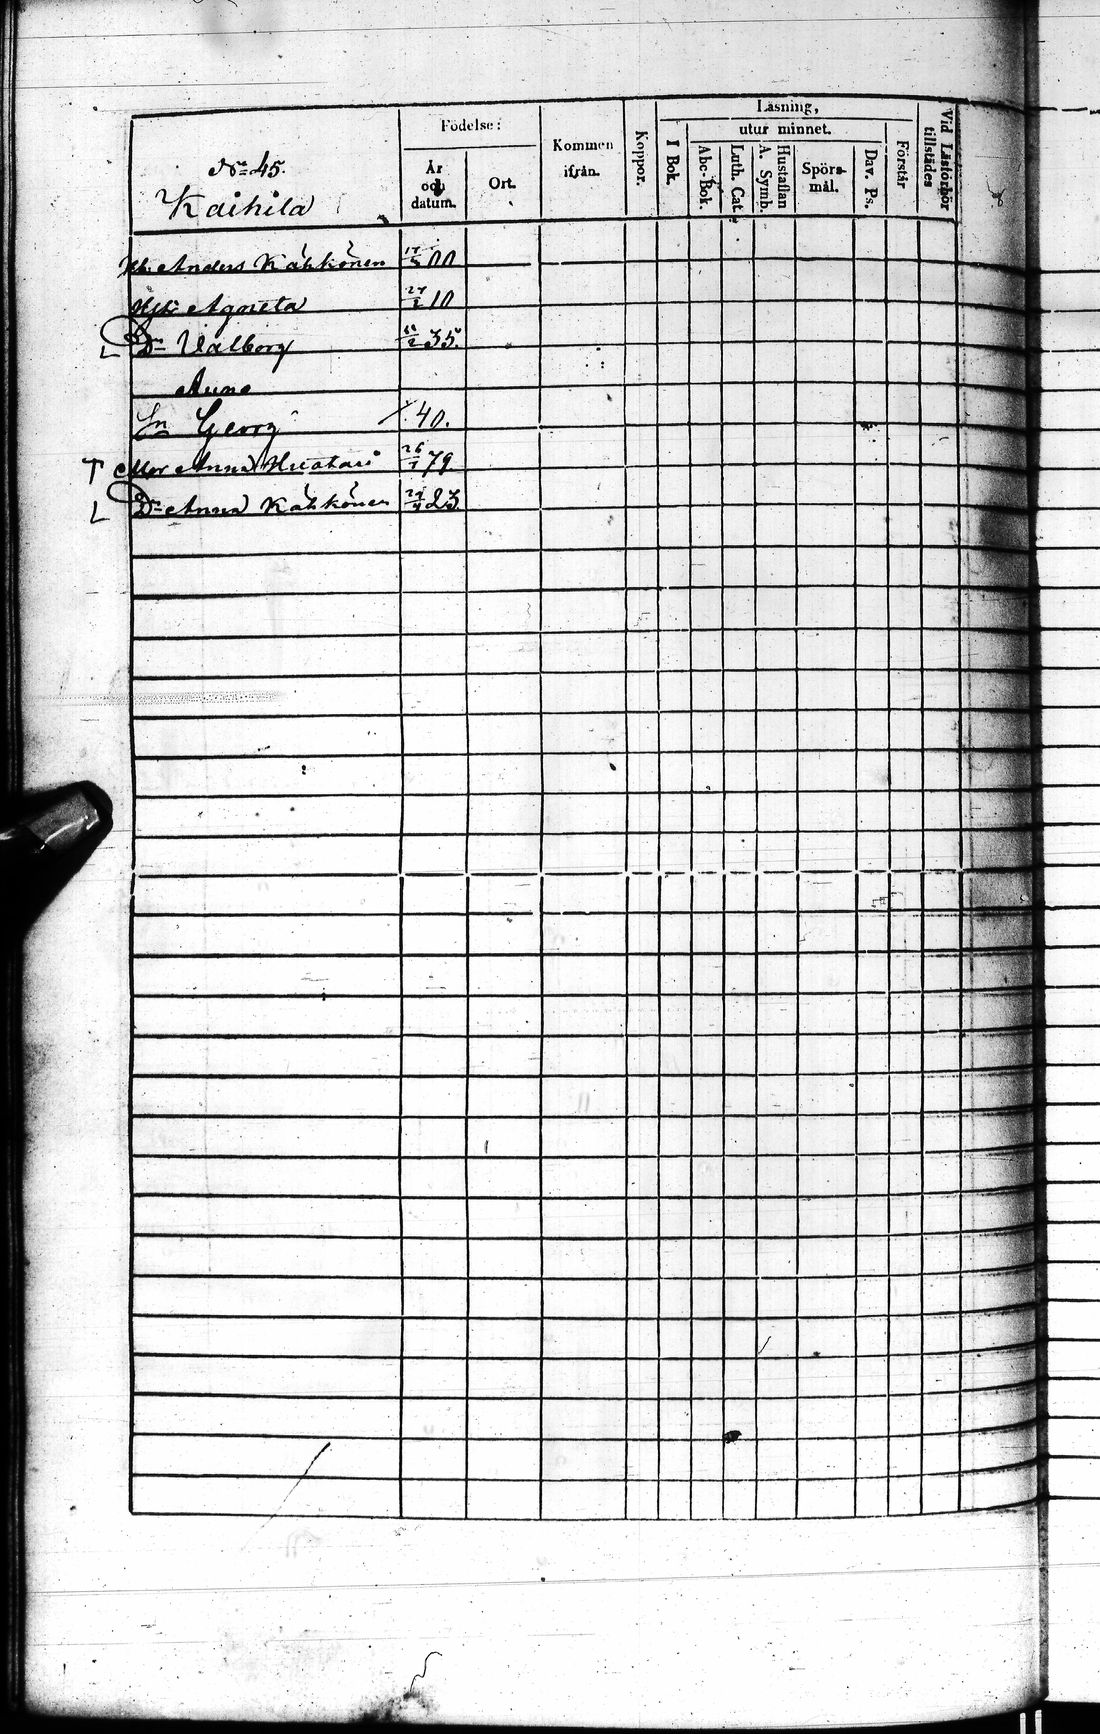 No 45.
Kaihila
Födelse:
År och datum.
Ort.
Kommen ifrån.
Koppor.
Läsning,
utur minnet.
I Bok.
Abc-Bok.
Luth. Cat.
Hustaflan A. Symb.
Spörsmål.
Dav. Ps.
Förstår
Vid Läsförhör tillstädes
Anders Kähkönen 17/5 00
Agneta 27/2 10
Dr Valborg 11/2 35.
Anna
Sn Georg 40.
Mor Anna Huotari 26/1 79
Dr Anna Kähkönen 24/4 23